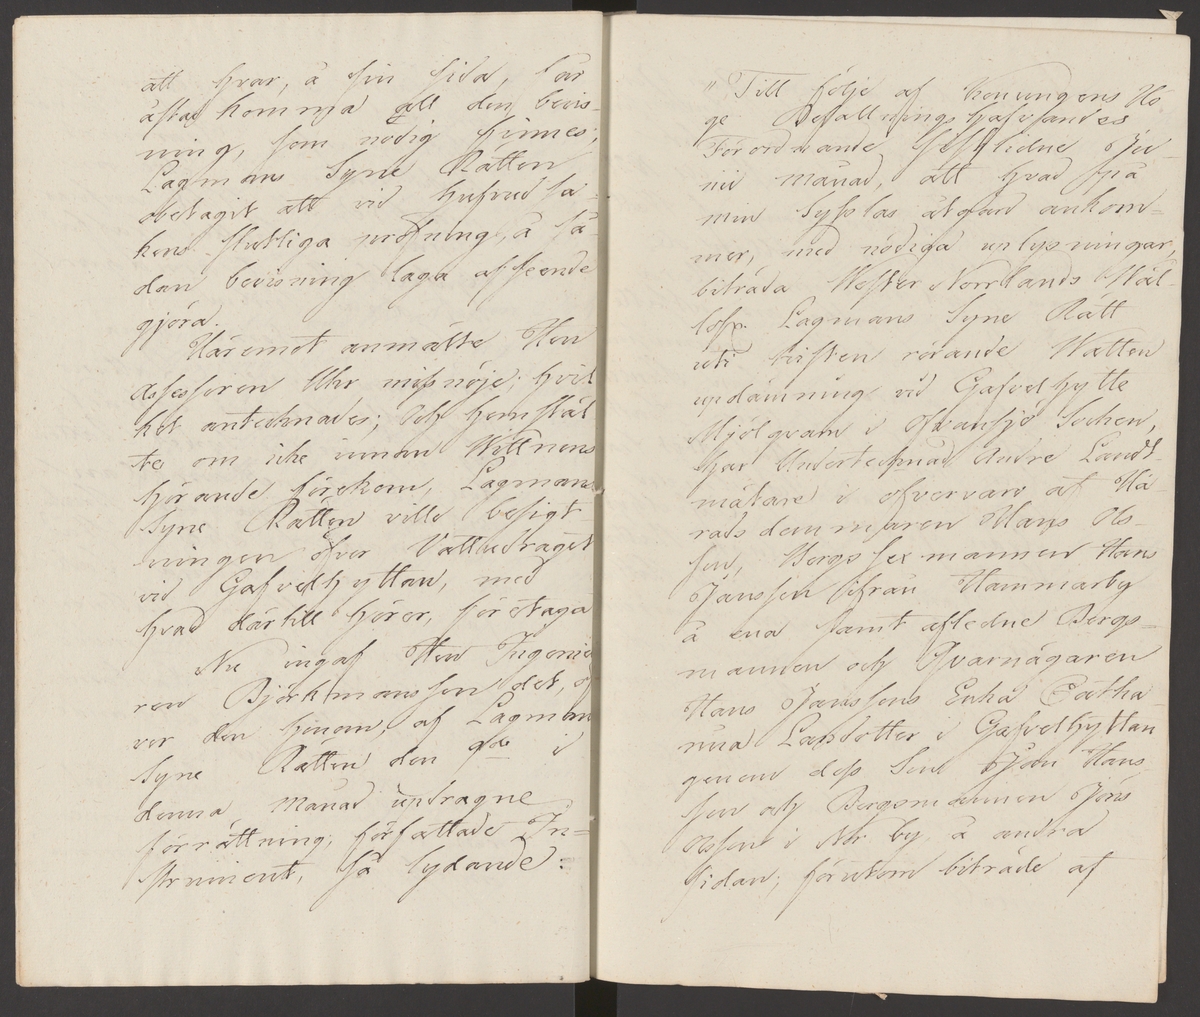 att hvar, å sin sida, får
åstad komma all den bevis-
ning, som nödig finnes;
Lagmans Syne Rätten
obetagit att vid hufvud sa-
kens slutliga pröfning, å så-
dan bevisning laga afseende
gjöra.
Häremot anmälte Herr
Assessoren Uhr missnöje; hvil
ket antecknades; och hemstäl
te om icke innan Wittnens
hörande förekom, Lagmans
Syne Rätten ville besigt-
ningen öfver Vattudraget
vid Gafvelhyttan, med
hvad därtill hörer, företaga
Nu ingaf Herr Ingenieu
ren Björkmansson det, öf
ver den honom, af Lagmans
Syne Rätten den 9de i
denna månad updragne
förrättning, författade In-
strument, så lydande:
" Till följe af Konungens Hö
ge Befallningshafvandes
Förordnande sistlidne Ju-
nii månad, att hvad på
min Sysslas åtgärd ankom-
mer, med nödiga uplysningar,
biträda Wester Norrlands Häl
lofr. Lagmans Syne Rätt
uti tvisten rörande Watten
updämning vid Gafvelhytte
Mjölqvarn i Ofvansjö Socken,
har Undertecknad Andre Landt
mätare i öfvervaro af Hä
radsdommaren Hans Ols-
son, Bergs Sexmannen Hans
Jansson ifrån Hammarby
å ena samt afledne Bergs-
mannen och Qvarnägaren
Hans Janssons Enka Catha
rina Larsdotter i Gafvelhyttan
genom dess Son Jan Hans
son och Bergsmannen Jöns
Olsson i Norrby, å andra
sidan; förutom biträde af